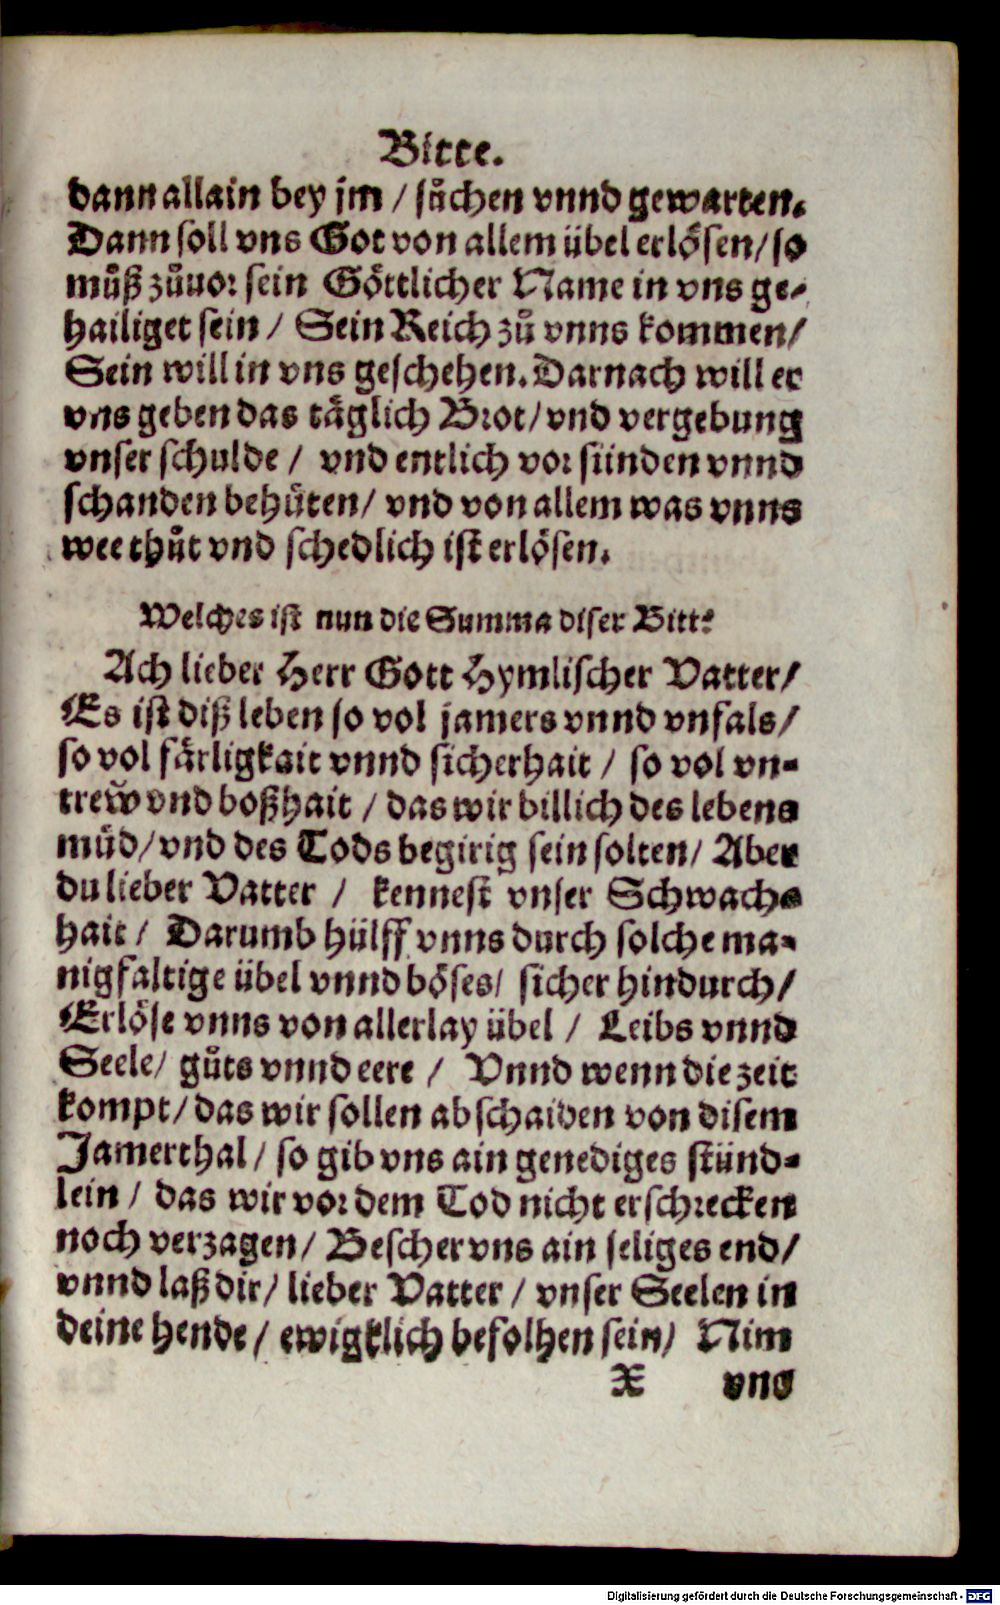 Bitte.
dann allain bey jm / sůchen vnnd gewarten.
Dann soll vns Got von allem übel erlösen / so
můß zůuor sein Göttlicher Name in vns ge-
hailiget sein / Sein Reich zů vnns kommen /
Sein will in vns geschehen. Darnach will er
vns geben das täglich Brot / vnd vergebung
vnser schulde / vnd entlich vor sünden vnnd
schanden behüten / vnd von allem was vnns
wee thůt vnd schedlich ist erlösen.
Welches ist nun die Summa diser Bitt?
Ach lieber Herr Gott Hymlischer Vatter /
Es ist diß leben so vol jamers vnnd vnfals /
so vol färligkait vnnd sicherhait / so vol vn-
trew vnd boßhait / das wir billich des lebens
müd / vnd des Tods begirig sein solten / Aber
du lieber Vatter / kennest vnser Schwach-
hait / Darumb hülff vnns durch solche ma-
nigfaltige übel vnnd böses / sicher hindurch /
Erlöse vnns von allerlay übel / Leibs vnnd
Seele / gůts vnnd eere / Vnnd wenn die zeit
kompt / das wir sollen abschaiden von disem
Jamerthal / so gib vns ain genediges stünd-
lein / das wir vor dem Tod nicht erschrecken
noch verzagen / Bescher vns ain seliges end /
vnnd laß dir / lieber Vatter / vnser Seelen in
deine hende / ewigklich befolhen sein / Nim
X vns
Digitalisierung gefördert durch die Deutsche Forschungsgemeinschaft - DFG